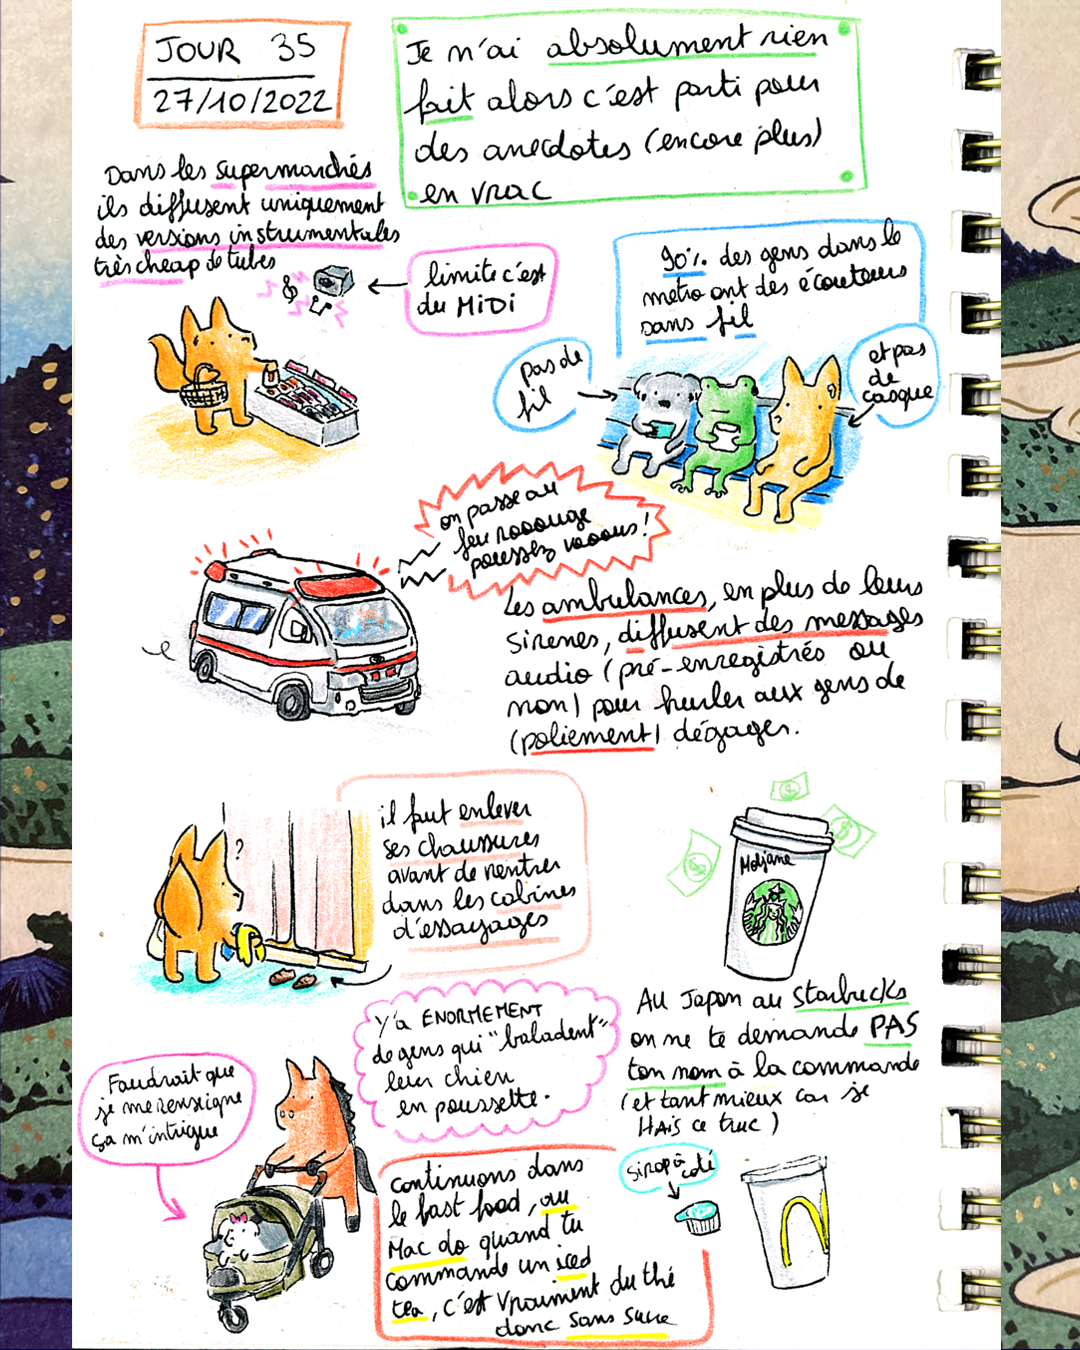 JOUR 35
27/10/2022
Je n'ai absolument rien
fait alors c'est parti pour
des anecdotes (encore plus)
en vrac
Dans les supermarchés
ils diffusent uniquement
des versions instrumentales
très cheap de tubes
limite c'est
du MiDi
90% des gens dans le
metro ont des écouteurs
sans fil
pas de
fil
et pas
de
casque
on passe au
feu rooouge
poussez vooous!
Les ambulances, en plus de leurs
sirenes, diffusent des messages
audio (pré-enregistrés ou
non) pour hurler aux gens de
(poliement) dégager.
il faut enlever
ses chaussures
avant de rentrer
dans les cabines
d'essayages
?
Modjane
Au Japon au Starbucks
on ne te demande PAS
ton nom à la commande
(et tant mieux car je
HAIS ce truc)
Y'a ENORMEMENT
de gens qui "baladent"
leur chien
en poussette.
Faudrait que
je me renseigne
ça m'intrigue
Continuons dans
le fast food, au
Mac do quand tu
commande un iced
tea, c'est vraiment du thé
donc sans sucre
sirop à
coté